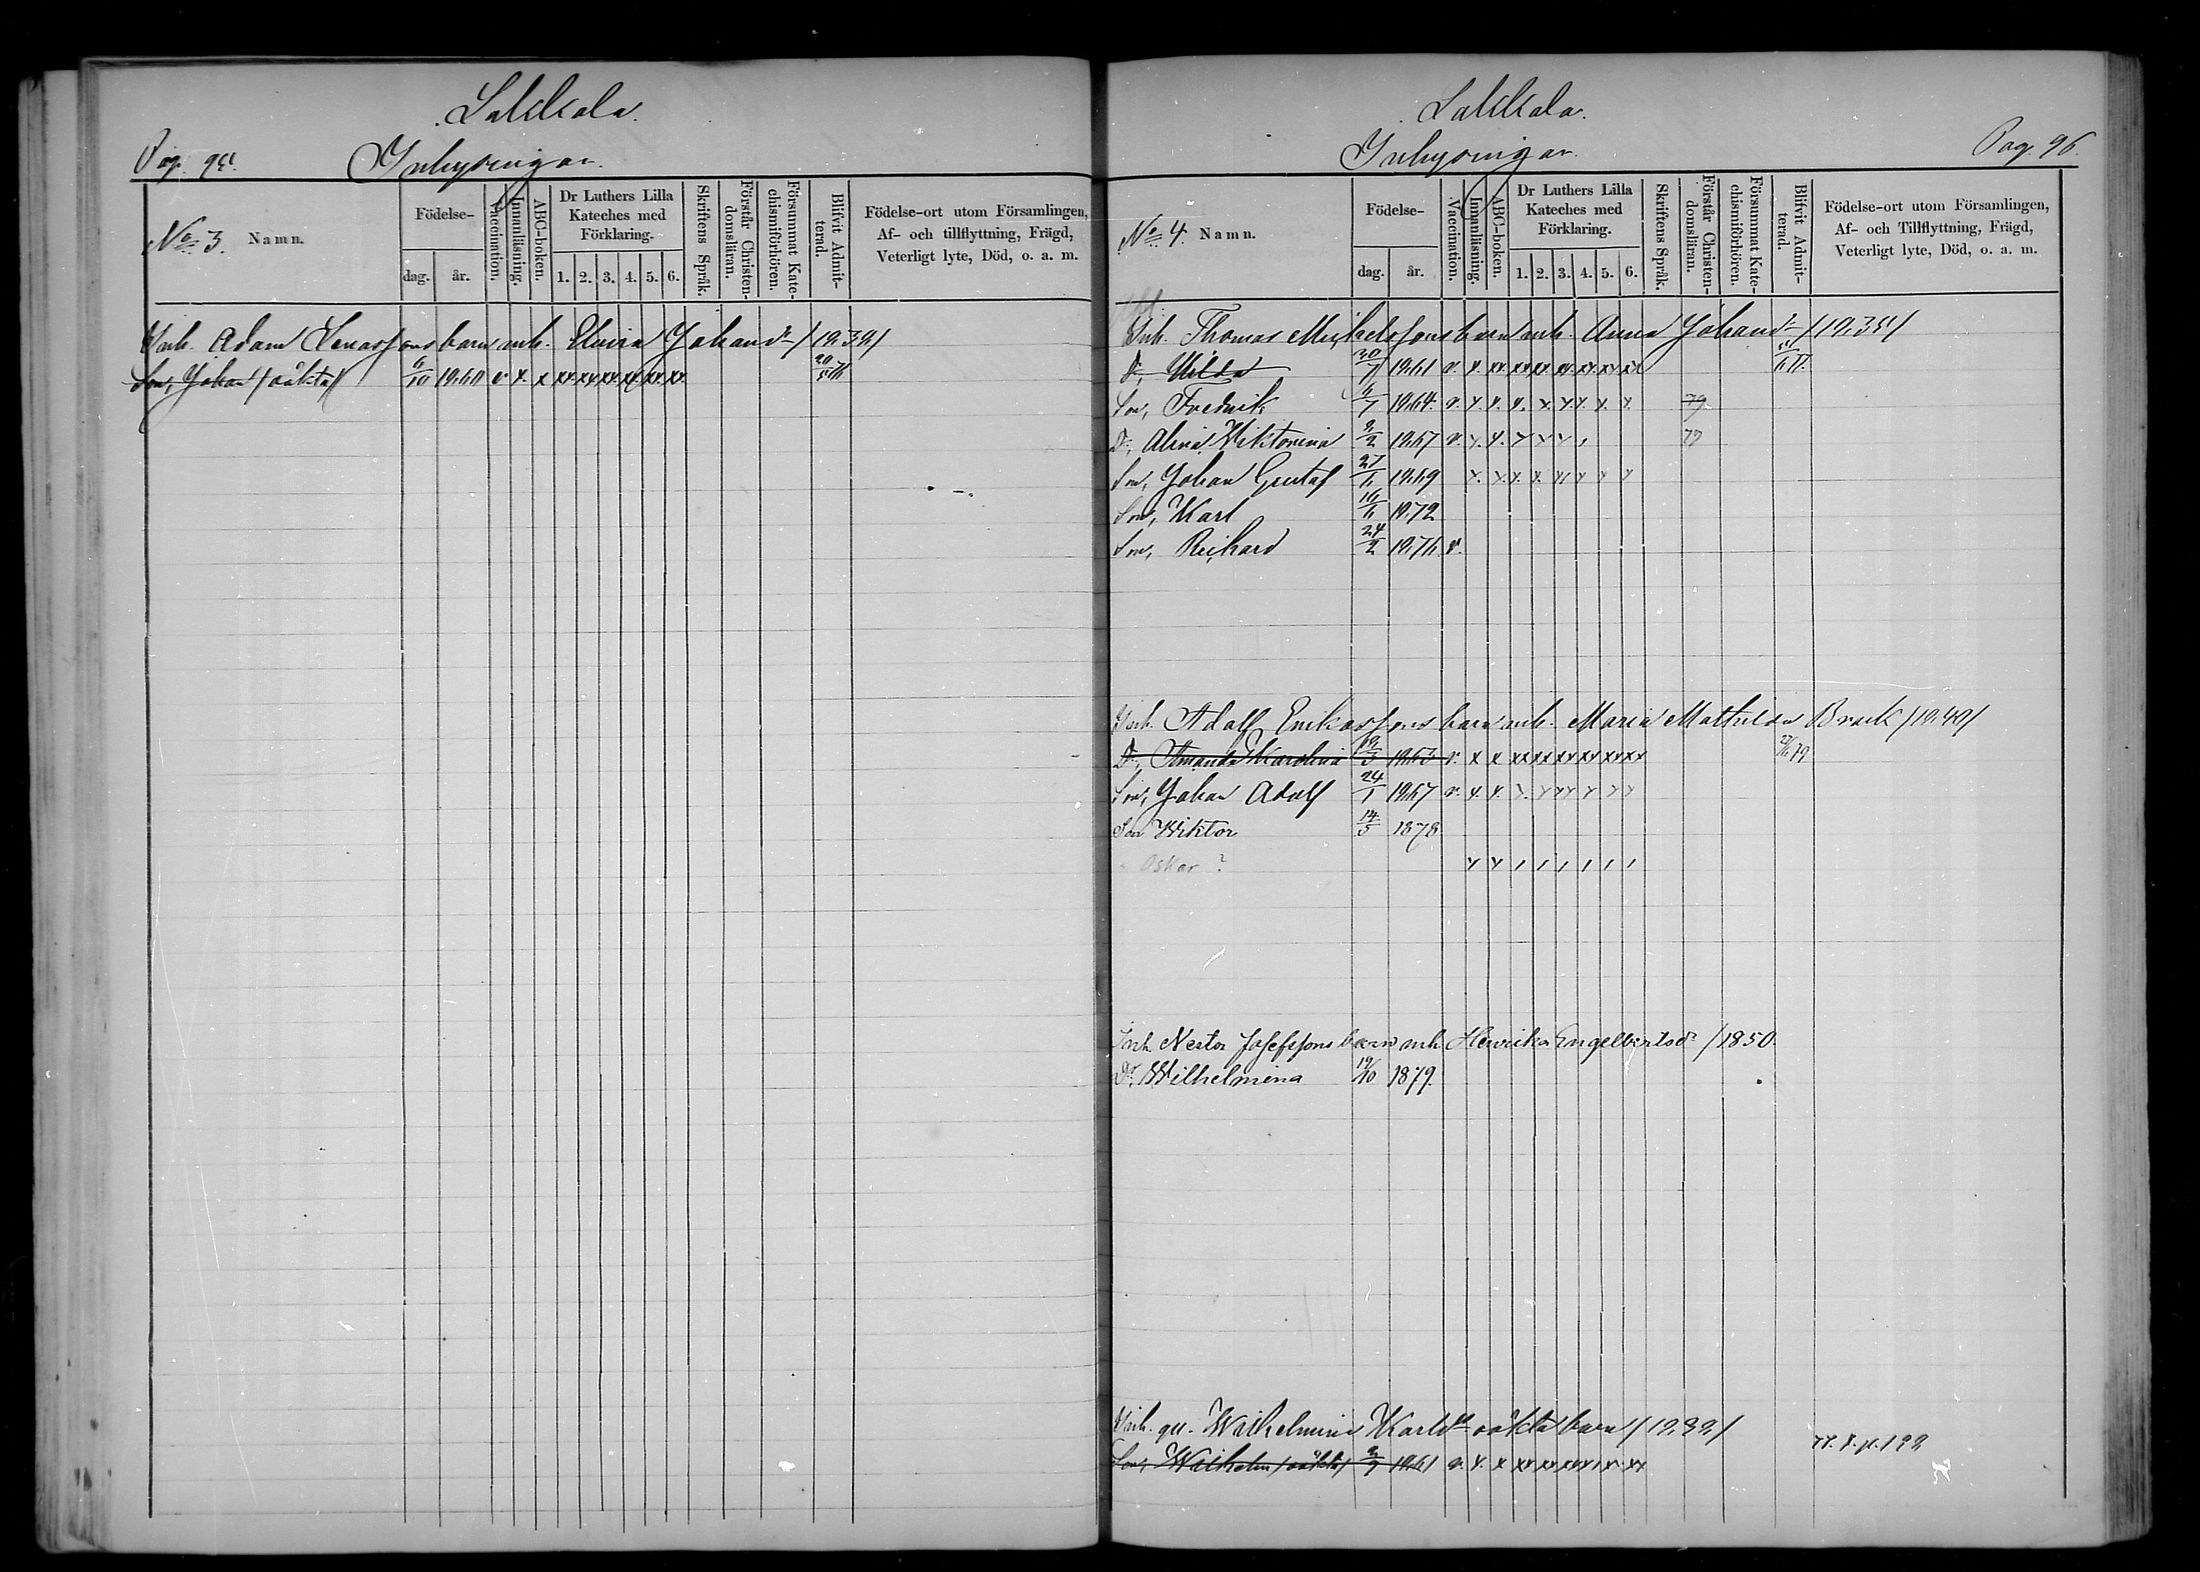 Lakkala.
Pag. 95. Inhysingar.
No 3. Namn.
Födelse-
dag. år.
Vaccination.
Innanläsning.
ABC-boken.
Dr Luthers Lilla
Kateches med
Förklaring.
1. 2. 3. 4. 5. 6.
Skriftens Språk.
Förstår Christen-
domsläran.
Försummat Kate-
chismiförhören.
Blifvit Admit-
terad.
Födelse-ort utom Församlingen,
Af- och tillflyttning, Frägd,
Veterligt lyte, Död, o. a. m.
Inh. Adam barn mh. Johansdr / 1839/
Son, Johan /oäkta/ 1860 v x x xx xx xx xx xx xx
Lakkala.
Inhysingar. Pag. 96.
No 4. Namn.
Födelse-
dag. år.
Vaccination.
Innanläsning.
ABC-boken.
Dr Luthers Lilla
Kateches med
Förklaring.
1. 2. 3. 4. 5. 6.
Skriftens Språk.
Förstår Christen-
domsläran.
Försummat Kate-
chismiförhören.
Blifvit Admit-
terad.
Födelse-ort utom Församlingen,
Af- och Tillflyttning, Frägd,
Veterligt lyte, Död, o. a. m.
Inh. Thomas Michelssons barn mh. Anna Johansdr /1835/
Dr, Hilda 30/7 1861 v. x. xx xx xx xx xx xx xx
Son, Fredrik 6/7 1864. v. x. x. x. x. x x. x. x. 79
Dr, Alina Viktorina 2/2 1867 v. x. x. x x x 79
Son, Johan Gustaf 1869 x. x. x. x. x x x x
Son, Karl 1872
Son, Rikhard 24/2 1876 v.
Inh. Adolf Erikssons barn mh. Maria Mathilda Brack /1840/
Dr, Amanda Karolina 19/3 1863 v. x x xx xx xx xx xx xx
Son, Johan Adolf 24/1 1867 v. x. x. x. x x x x x
Son Wiktor 14/5 1878
Oskar ? x x
Inh Nestor Josefssons barn mh Henrika Engelbertsdr /1850.
Dr. Wilhelmina 19/10 1879.
Inh. qv. Wilhelmina Karlsdr oäkta barn /1832/
Son, Wilhelm /oäkta/ 1861 v. x. x xx xx xx xx xx xx